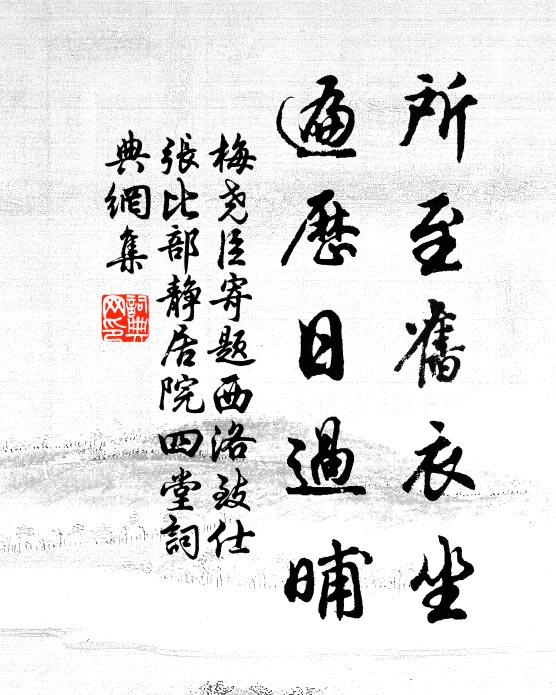 所至舊衣坐
遍歷日過晡
梅堯臣寄題西洛致仕
張比部靜居院四堂詞
典網集
詞典
网印